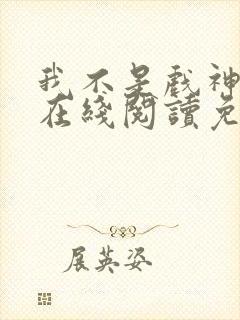 我不是戲神
在綫閱讀免
展英姿